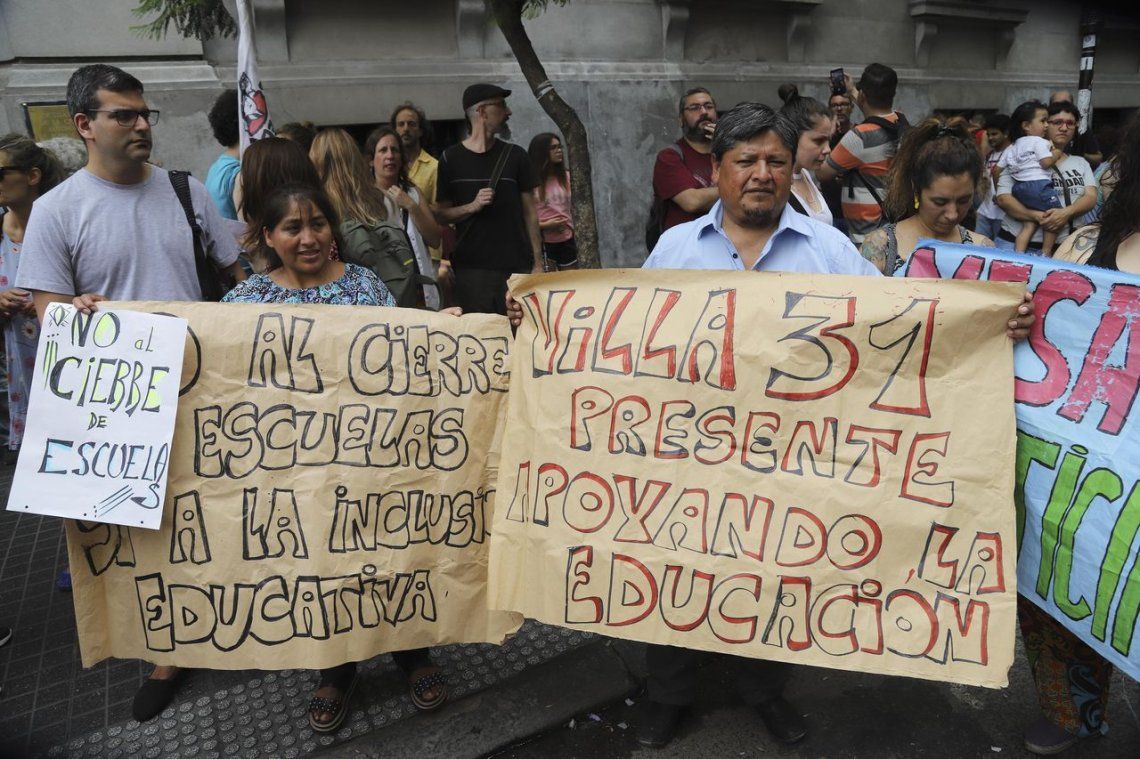 NO al
CIERRE
DE
ESCUELAS
AL CiERRE
ESCUELAS
Si A LA iNCLUSi
EDUCATiVA
ViLLA 31
PRESENTE
APOYANDO LA
EDUCACiÓN
MESA